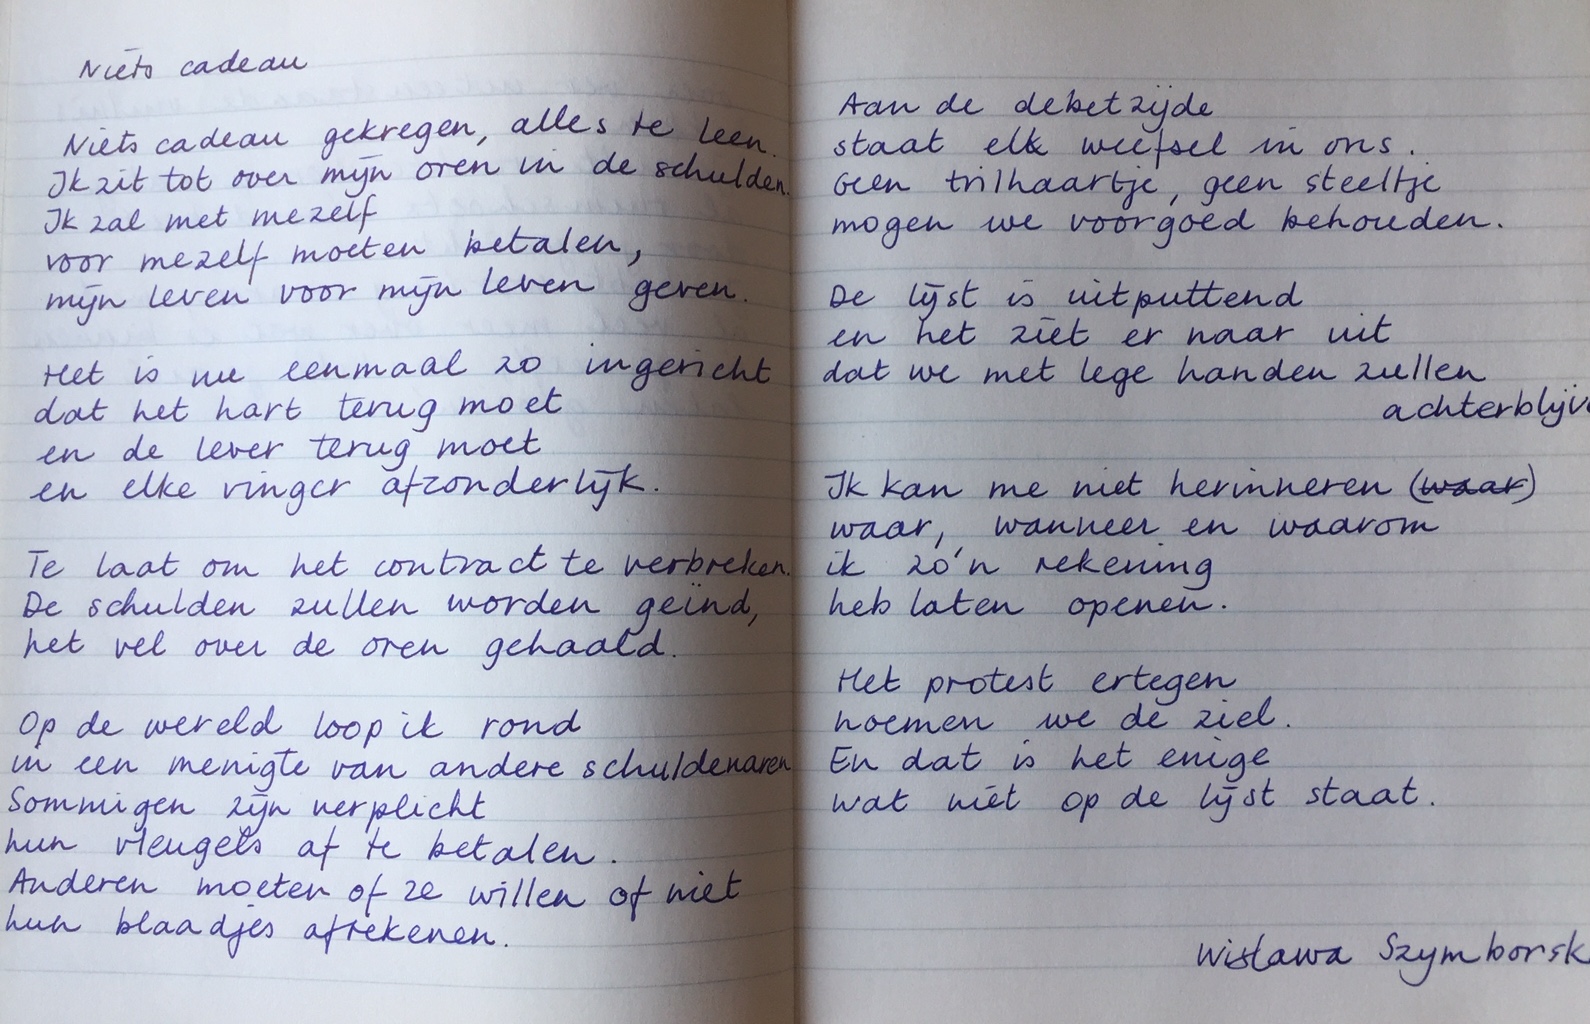 Niets cadeau
Niets cadeau gekregen, alles te leen.
Ik zit tot over mijn oren in de schulden.
Ik zal met mezelf
voor mezelf moeten betalen,
mijn leven voor mijn leven geven.
Het is nu eenmaal zo ingericht
dat het hart terug moet
en de lever terug moet
en elke vinger afzonderlijk.
Te laat om het contract te verbreken.
De schulden zullen worden geïnd,
het vel over de oren gehaald.
Op de wereld loop ik rond
in een menigte van andere schuldenaren
Sommigen zijn verplicht
hun vleugels af te betalen.
Anderen moeten of ze willen of niet
hun blaadjes afrekenen.
Aan de debetzijde
staat elk weefsel in ons.
Geen trilhaartje, geen steeltje
mogen we voorgoed behouden.
De lijst is uitputtend
en het ziet er naar uit
dat we met lege handen zullen
achterblijv
Ik kan me niet herinneren (waar)
waar, wanneer en waarom
ik zo'n rekening
heb laten openen.
Het protest ertegen
noemen we de ziel.
En dat is het enige
wat niet op de lijst staat.
Wisława Szymborsk